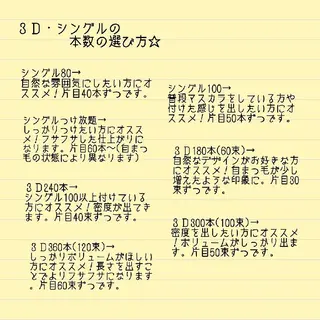 ３Ｄ・シングルの
本数の選び方☆
シングル80→
自然な雰囲気にしたい方にオ
ススメ！片目40本ずつです。
シングルつけ放題→
しっかりつけたい方にオスス
メ！フサフサした仕上がりに
なります。片目60本～(自まつ
毛の状態により異なります)
３Ｄ240本→
シングル100以上付けている
方にオススメ！密度が出てき
ます。片目40束ずつです。
３Ｄ360本(120束)→
しっかりボリュームがほしい
方にオススメ！長さを出すこ
とでよりフサフサになります
。片目60束ずつです。
シングル100→
普段マスカラをしている方や
付けた感じを出したい方にオ
ススメ！片目50本ずつです。
３Ｄ180本(60束)→
自然なデザインがお好きな方
にオススメ！自まつ毛が少し
増えたような印象に。片目30
束ずつです。
３Ｄ300本(100束)→
密度を出したい方にオススメ
！ボリュームがしっかり出ま
す。片目50束ずつです。